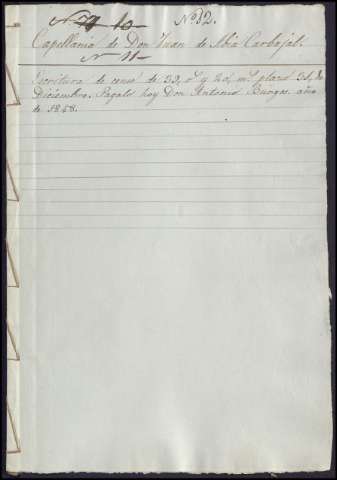 Nº 10 Nº 12.
Capellania de Don Juan de Abia Carbajal.
Nº 11
Escritura de censo de 33, rˢ y 20, mˢ plazo 31, de
Diciembre. Pagalo hoy Don Antonio Burgos año
de 1848.